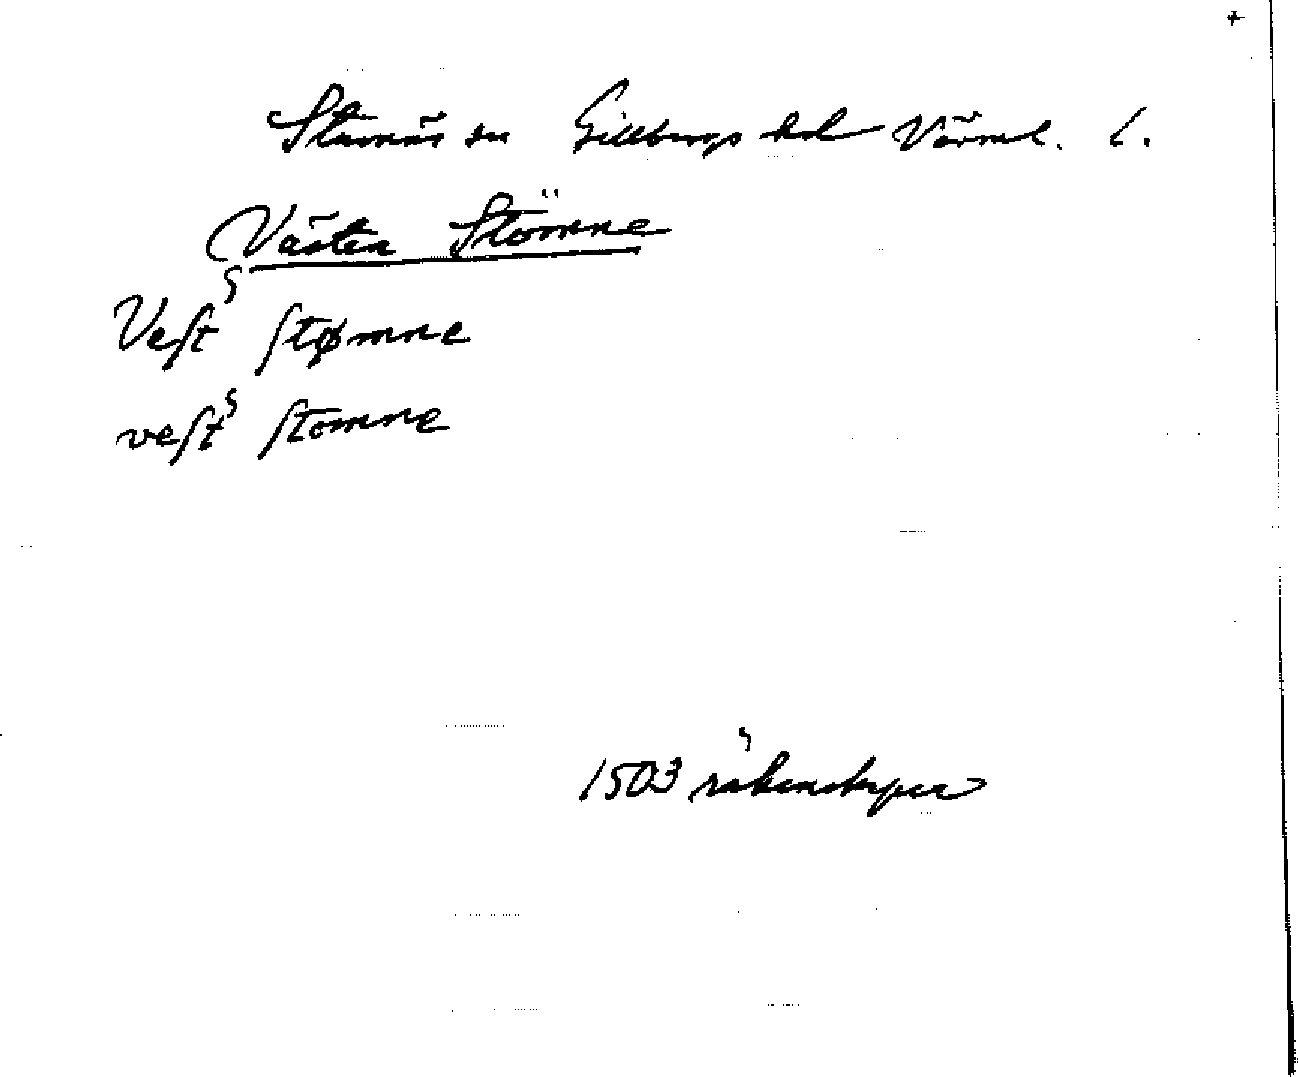 +
Stavnäs sn Gillbergs hd Värml. l.
Väster Stömne
Veſtˢ ſtømne
veſtˢ ſtomne
1503 räkenskaper